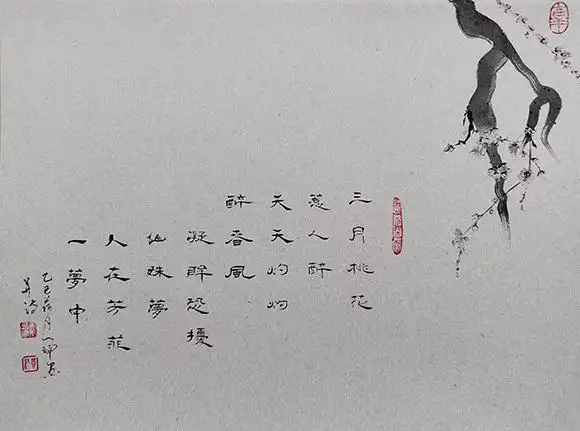 三月桃花
惹人醉
夭夭灼灼
醉春風
凝眸恐擾
仙姝夢
人在芳菲
一夢中
乙巳